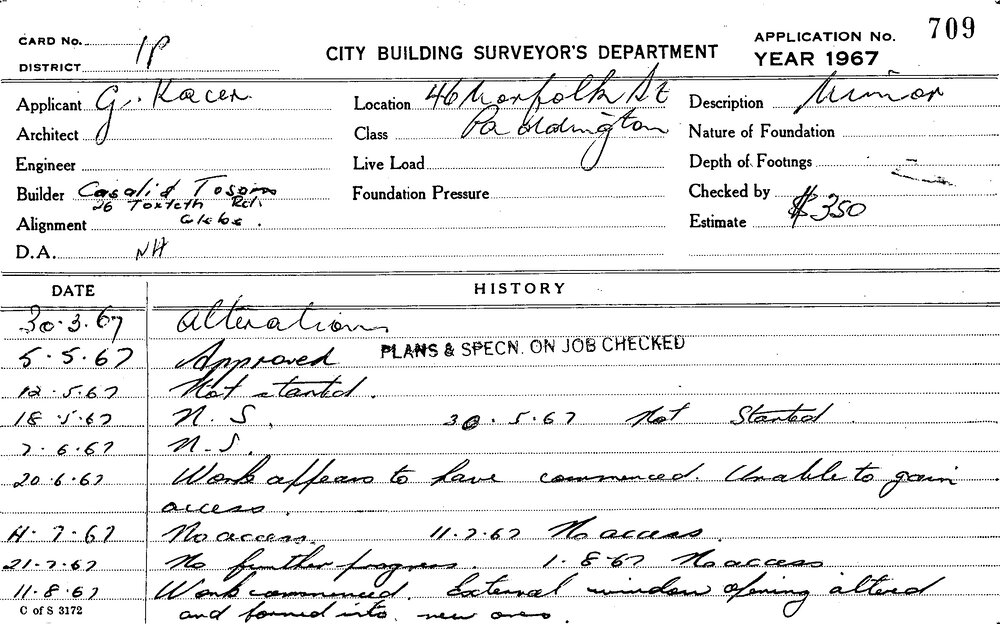 CARD No. 1P
DISTRICT
CITY BUILDING SURVEYOR'S DEPARTMENT
APPLICATION No. 709
YEAR 1967
Applicant G. Kacer
Location 46 Norfolk St
Description Minor
Architect
Class Paddington
Nature of Foundation
Engineer
Live Load
Depth of Footings
Builder Casali &
26 Toxteth Rd.
Foundation Pressure
Checked by
Alignment Glebe.
Estimate $350
D.A. NH
DATE
HISTORY
30.3.67 Alterations
5.5.67 Approved PLANS & SPECN. ON JOB CHECKED
12.5.67 Not started.
18.5.67 N.S. 30.5.67 Not Started
7.6.67 N.S.
20.6.67 Work appears to have commenced. Unable to gain
access.
7.67 No access. 11.7.67 No access.
21.7.67 No further progress. 1.8.67 No access
11.8.67 Work commenced. External window opening altered
and formed into new ones.
C of S 3172